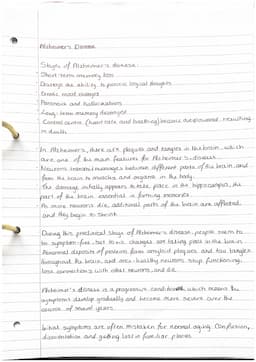 Alzheimer's Disease
Stages of Alzheimer's disease:
Short-term memory loss
Destroys the ability to process logical thoughts
Erratic mood changes
Paranoia and hallucinations
Long-term memory destroyed
Control centre (heart rate and breathing) become overpowered, resulting
in death
In Alzheimer's, there are plaques and tangles in the brain, which
are one of the main features for Alzheimer's disease
Neurons transmit messages between different parts of the brain, and
from the brain to muscles and organs in the body.
The damage initially appears to take place in the hippocampus, the
part of the brain essential in forming memories
As more neurons die, additional parts of the brain are affected
and they begin to shrink
During this preclinical stage of Alzheimer's disease, people seem to
be symptom-free, but toxic changes are taking place in the brain
Abnormal deposits of proteins form amyloid plaques and tau tangles
throughout the brain, and once-healthy neurons stop functioning,
lose connections with other neurons, and die
Alzheimer's disease is a progressive condition which means the
symptoms develop gradually and become more severe over the
course of several years.
Initial symptoms are often mistaken for normal aging. Confusion,
disorientation and getting lost in familiar places